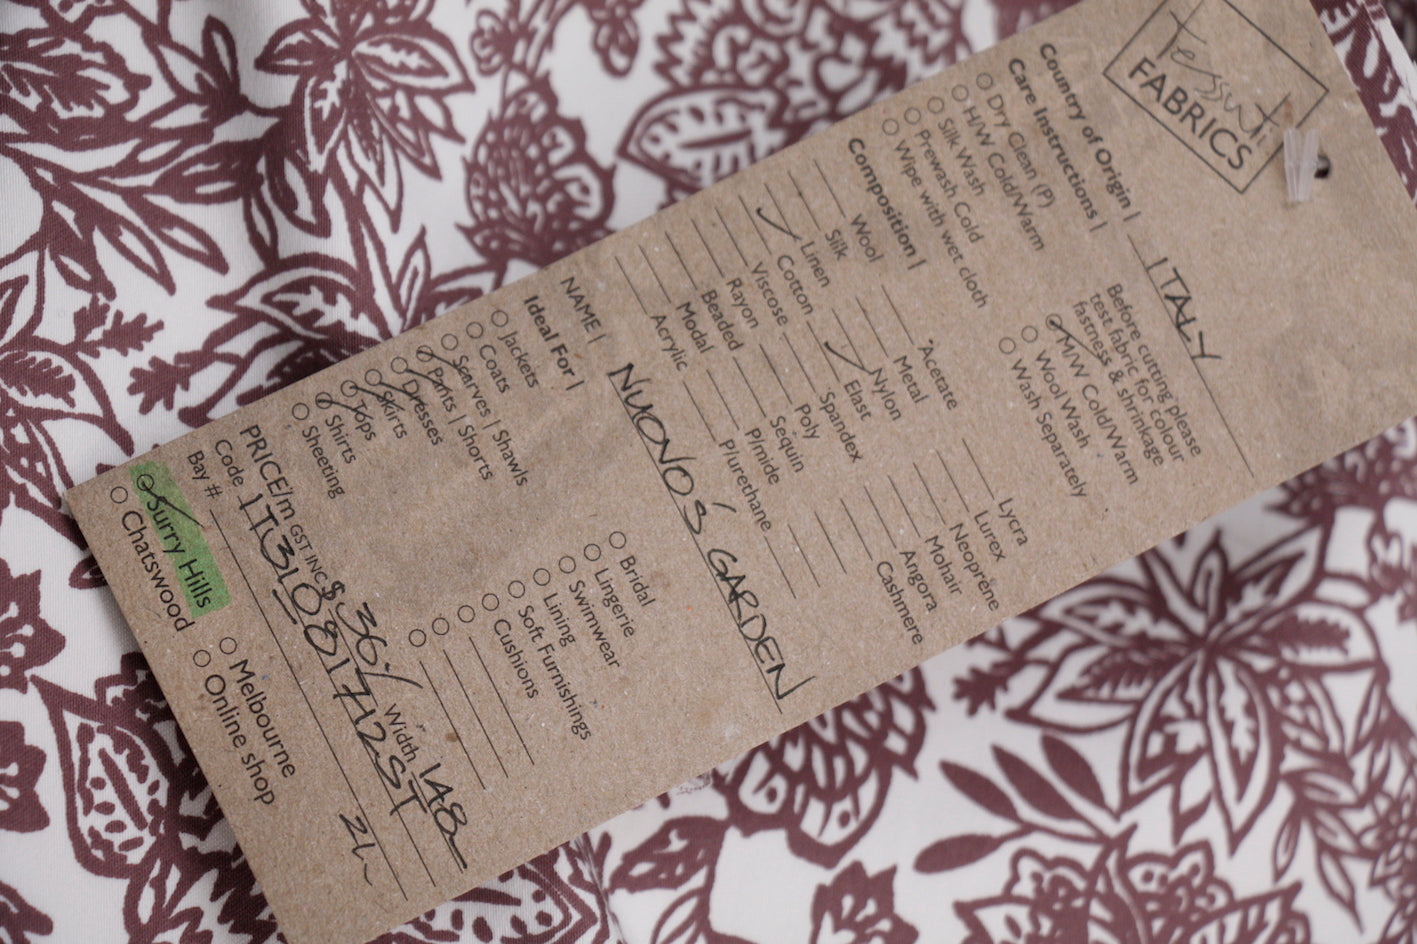 Tessuti
FABRICS
Country of Origin | ITALY
Care Instructions |
Dry Clean (P)
H/W Cold/Warm
Silk Wash
Prewash Cold
Wipe with wet cloth
Before cutting please
test fabric for colour
fastness & shrinkage
M/W Cold/Warm
Wool Wash
Wash Separately
Composition |
Wool
Silk
Linen
Cotton
Viscose
Rayon
Beaded
Modal
Acrylic
Acetate
Metal
Nylon
Elast
Spandex
Poly
Sequin
Plmide
Plurethane
Lycra
Lurex
Neoprene
Mohair
Angora
Cashmere
NAME | NUONO'S GARDEN
Ideal For |
Jackets
Coats
Scarves | Shawls
Pants | Shorts
Dresses
Skirts
Tops
Shirts
Sheeting
Bridal
Lingerie
Swimwear
Lining
Soft Furnishings
Cushions
PRICE/m GST INC $36/ Width 148
Code
Bay #
Surry Hills
Chatswood
Melbourne
Online shop